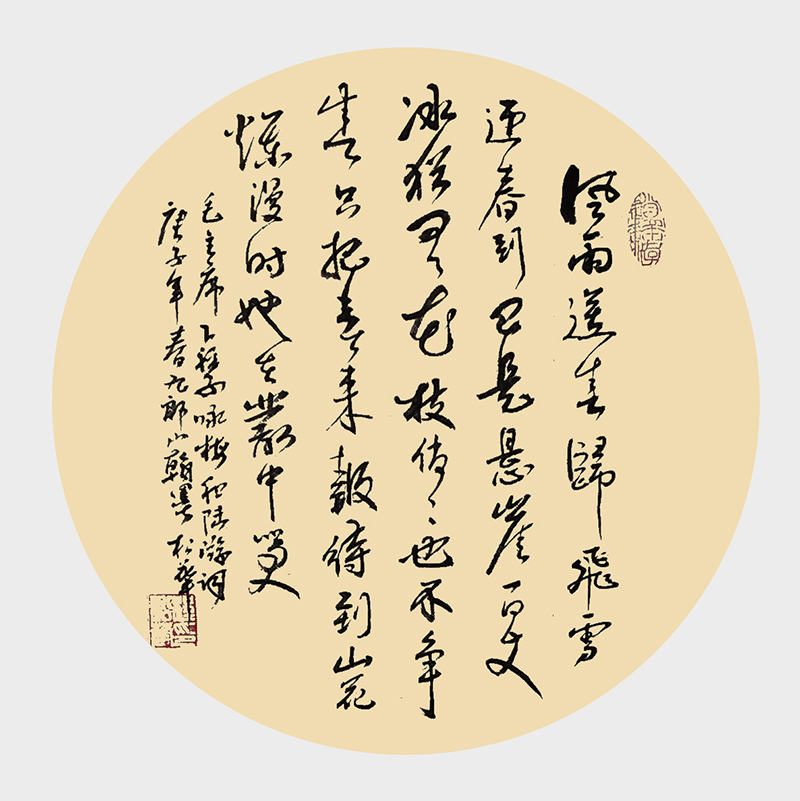 風雨送春歸飛雪
迎春到已是懸崖百丈
冰猶有花枝俏〻也不爭
春只把春來報待到山花
爛漫時她在叢中笑
毛主席卜算子咏梅和陆游词
庚子年春九郎山翰墨松